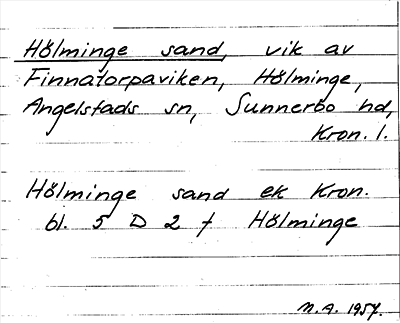 Hölminge sand, vik av
Finnatorpaviken, Hölminge,
Angelstads sn, Sunnerbo hd,
Kron. l.
Hölminge sand ek Kron.
bl. 5 D 2 f Hölminge
M.A. 1957.